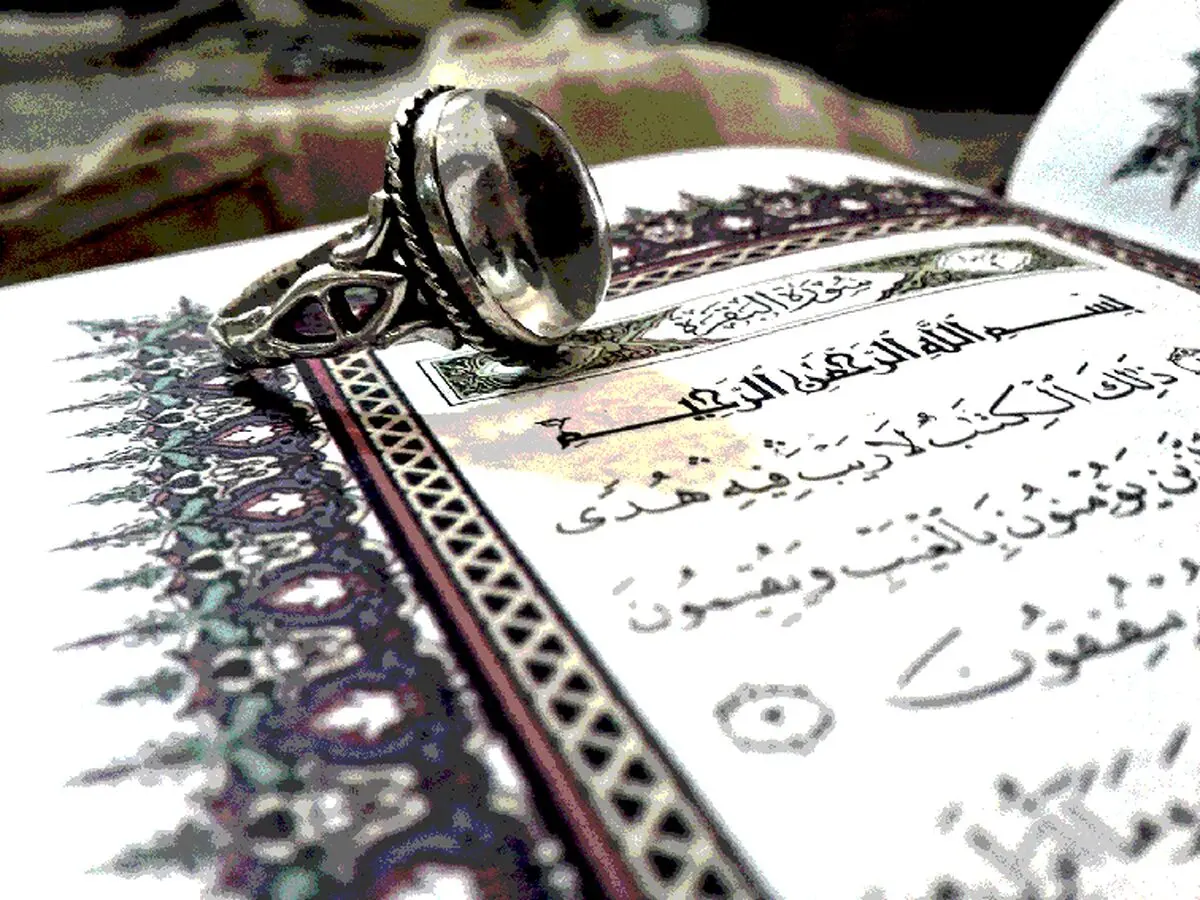 سُورَةُ البَقَرَة
بِسْمِ اللَّهِ الرَّحْمَنِ الرَّحِيمِ
ذَٰلِكَ ٱلْكِتَٰبُ لَا رَيْبَ فِيهِ هُدًى
يُؤْمِنُونَ بِالْغَيْبِ وَيُقِيمُونَ
يُنفِقُونَ